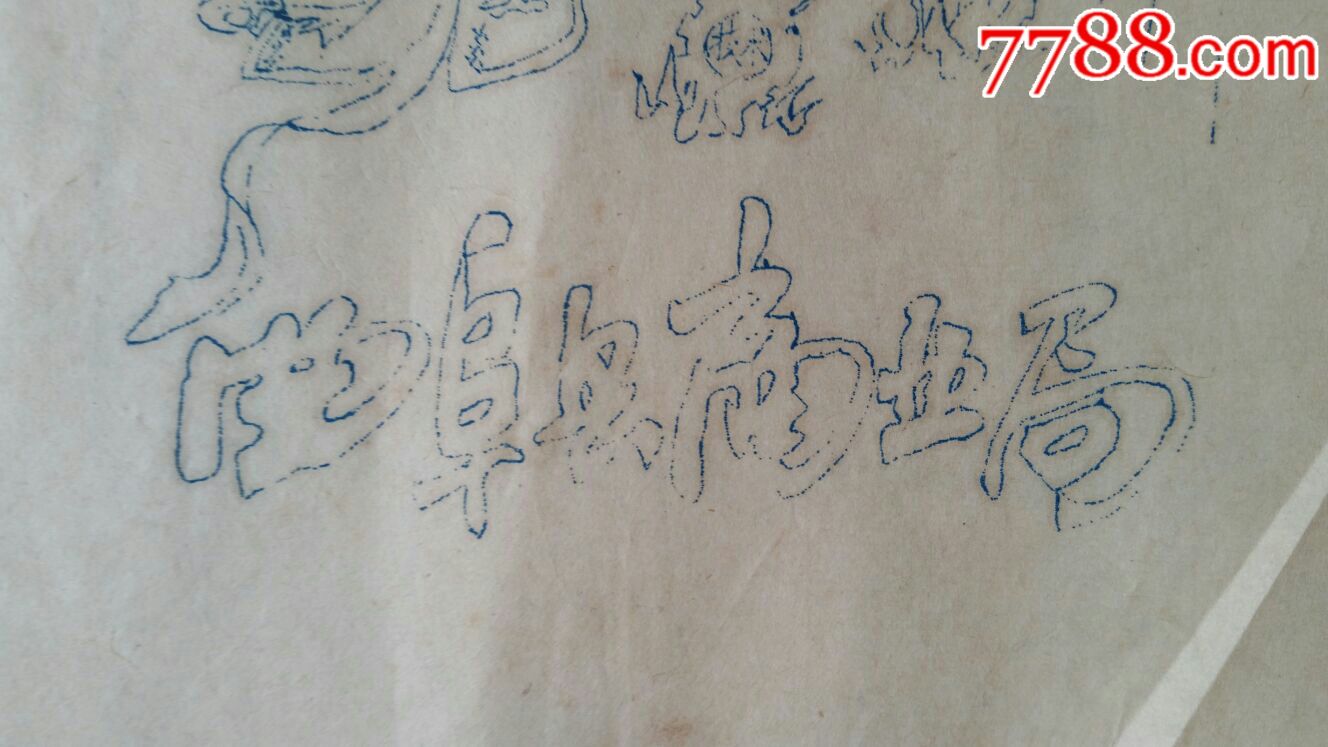 7788.com
曲阜县商业局